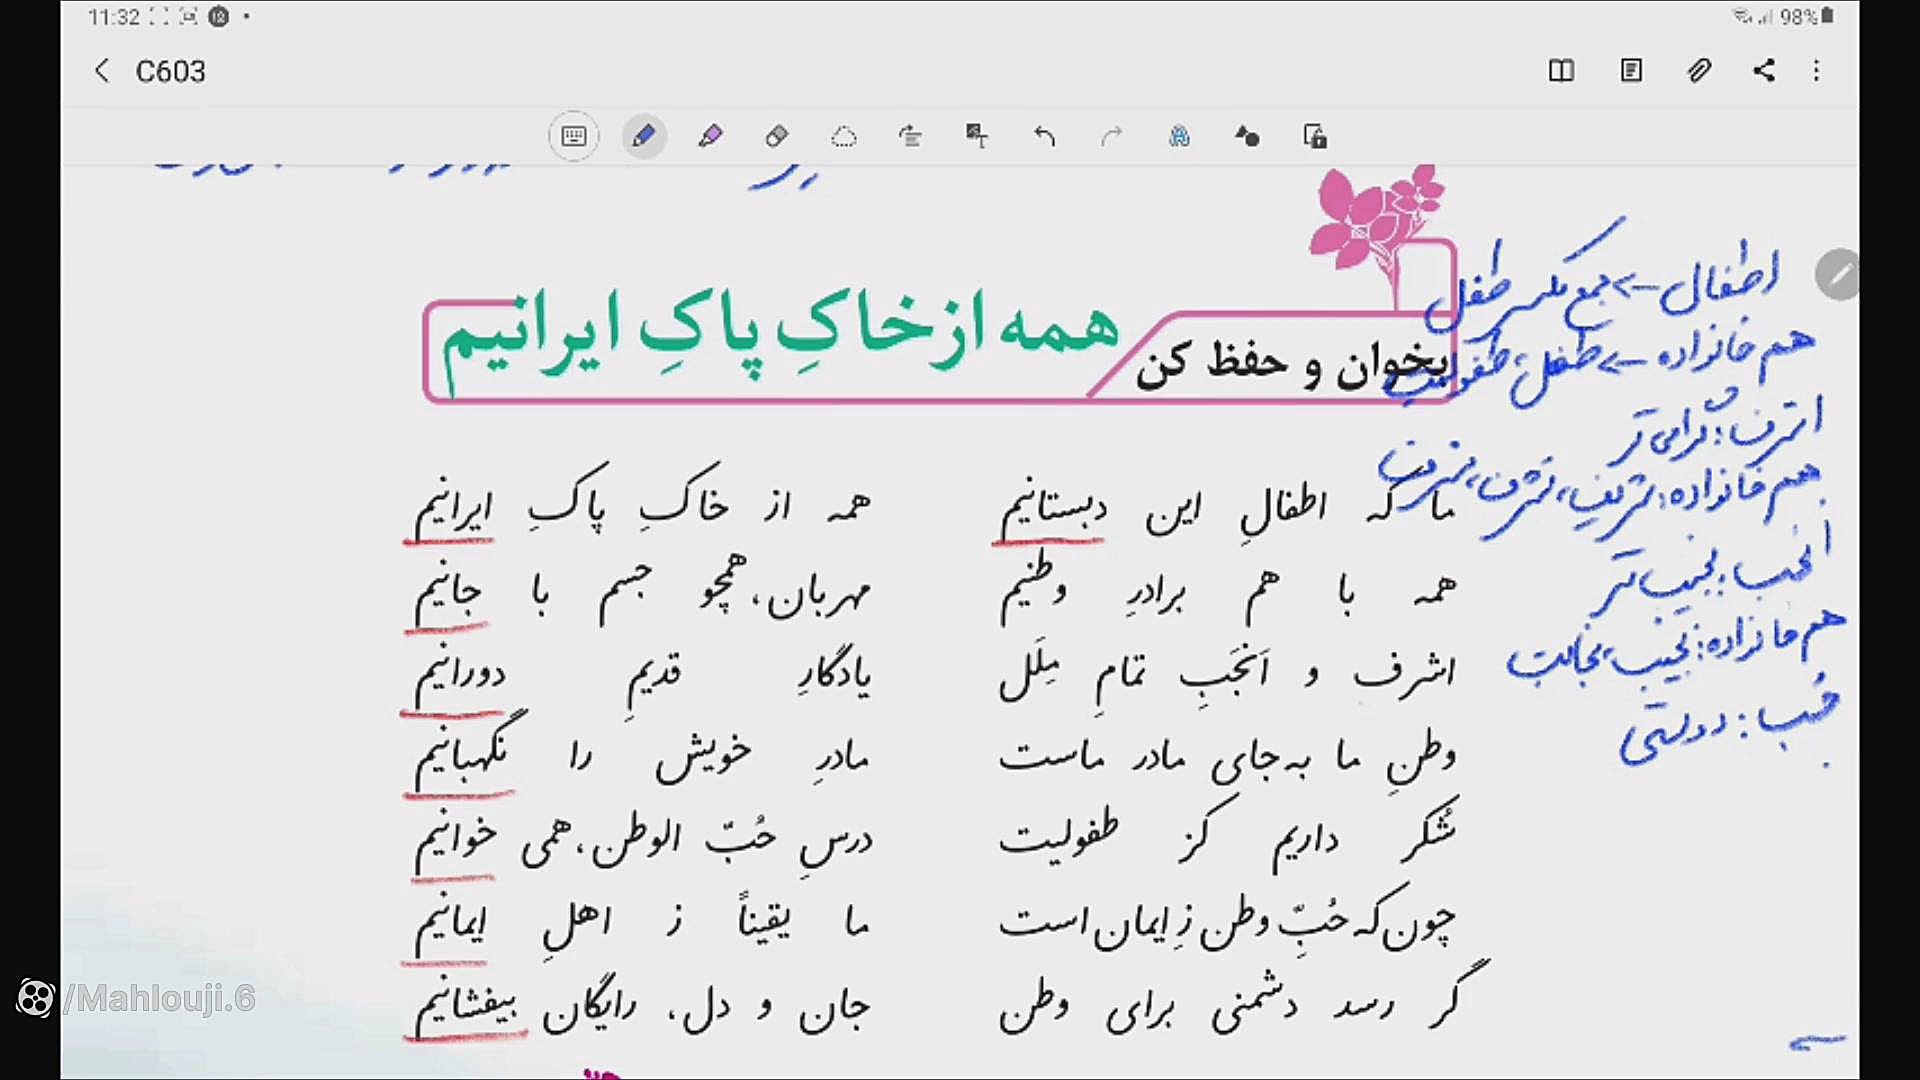 11:32
98%
C603
همه از خاکِ پاکِ ایرانیم
بخوان و حفظ کن
ما که اطفالِ این دبستانیم همه از خاکِ پاکِ ایرانیم
همه با هم برادرِ وطنیم مهربان، همچو جسم با جانیم
اشرف و اَنجَبِ تمامِ مِلَل یادگارِ قدیمِ دورانیم
وطنِ ما به‌جای مادر ماست مادرِ خویش را نگهبانیم
شُکر داریم کز طفولیت درسِ حُبّ الوطن، همی خوانیم
چون که حُبِّ وطن زِ ایمان است ما یقیناً ز اهلِ ایمانیم
گر رسد دشمنی برای وطن جان و دل، رایگان بیفشانیم
اطفال -> جمع مکسر طفل
هم خانواده -> طفل، طفولیت
اشرف: گرامی تر
هم خانواده: شریف، شرف،
انجب: نجیب تر
هم خانواده: نجیب، نجابت
حُب: دوستی
/Mahlouji.6